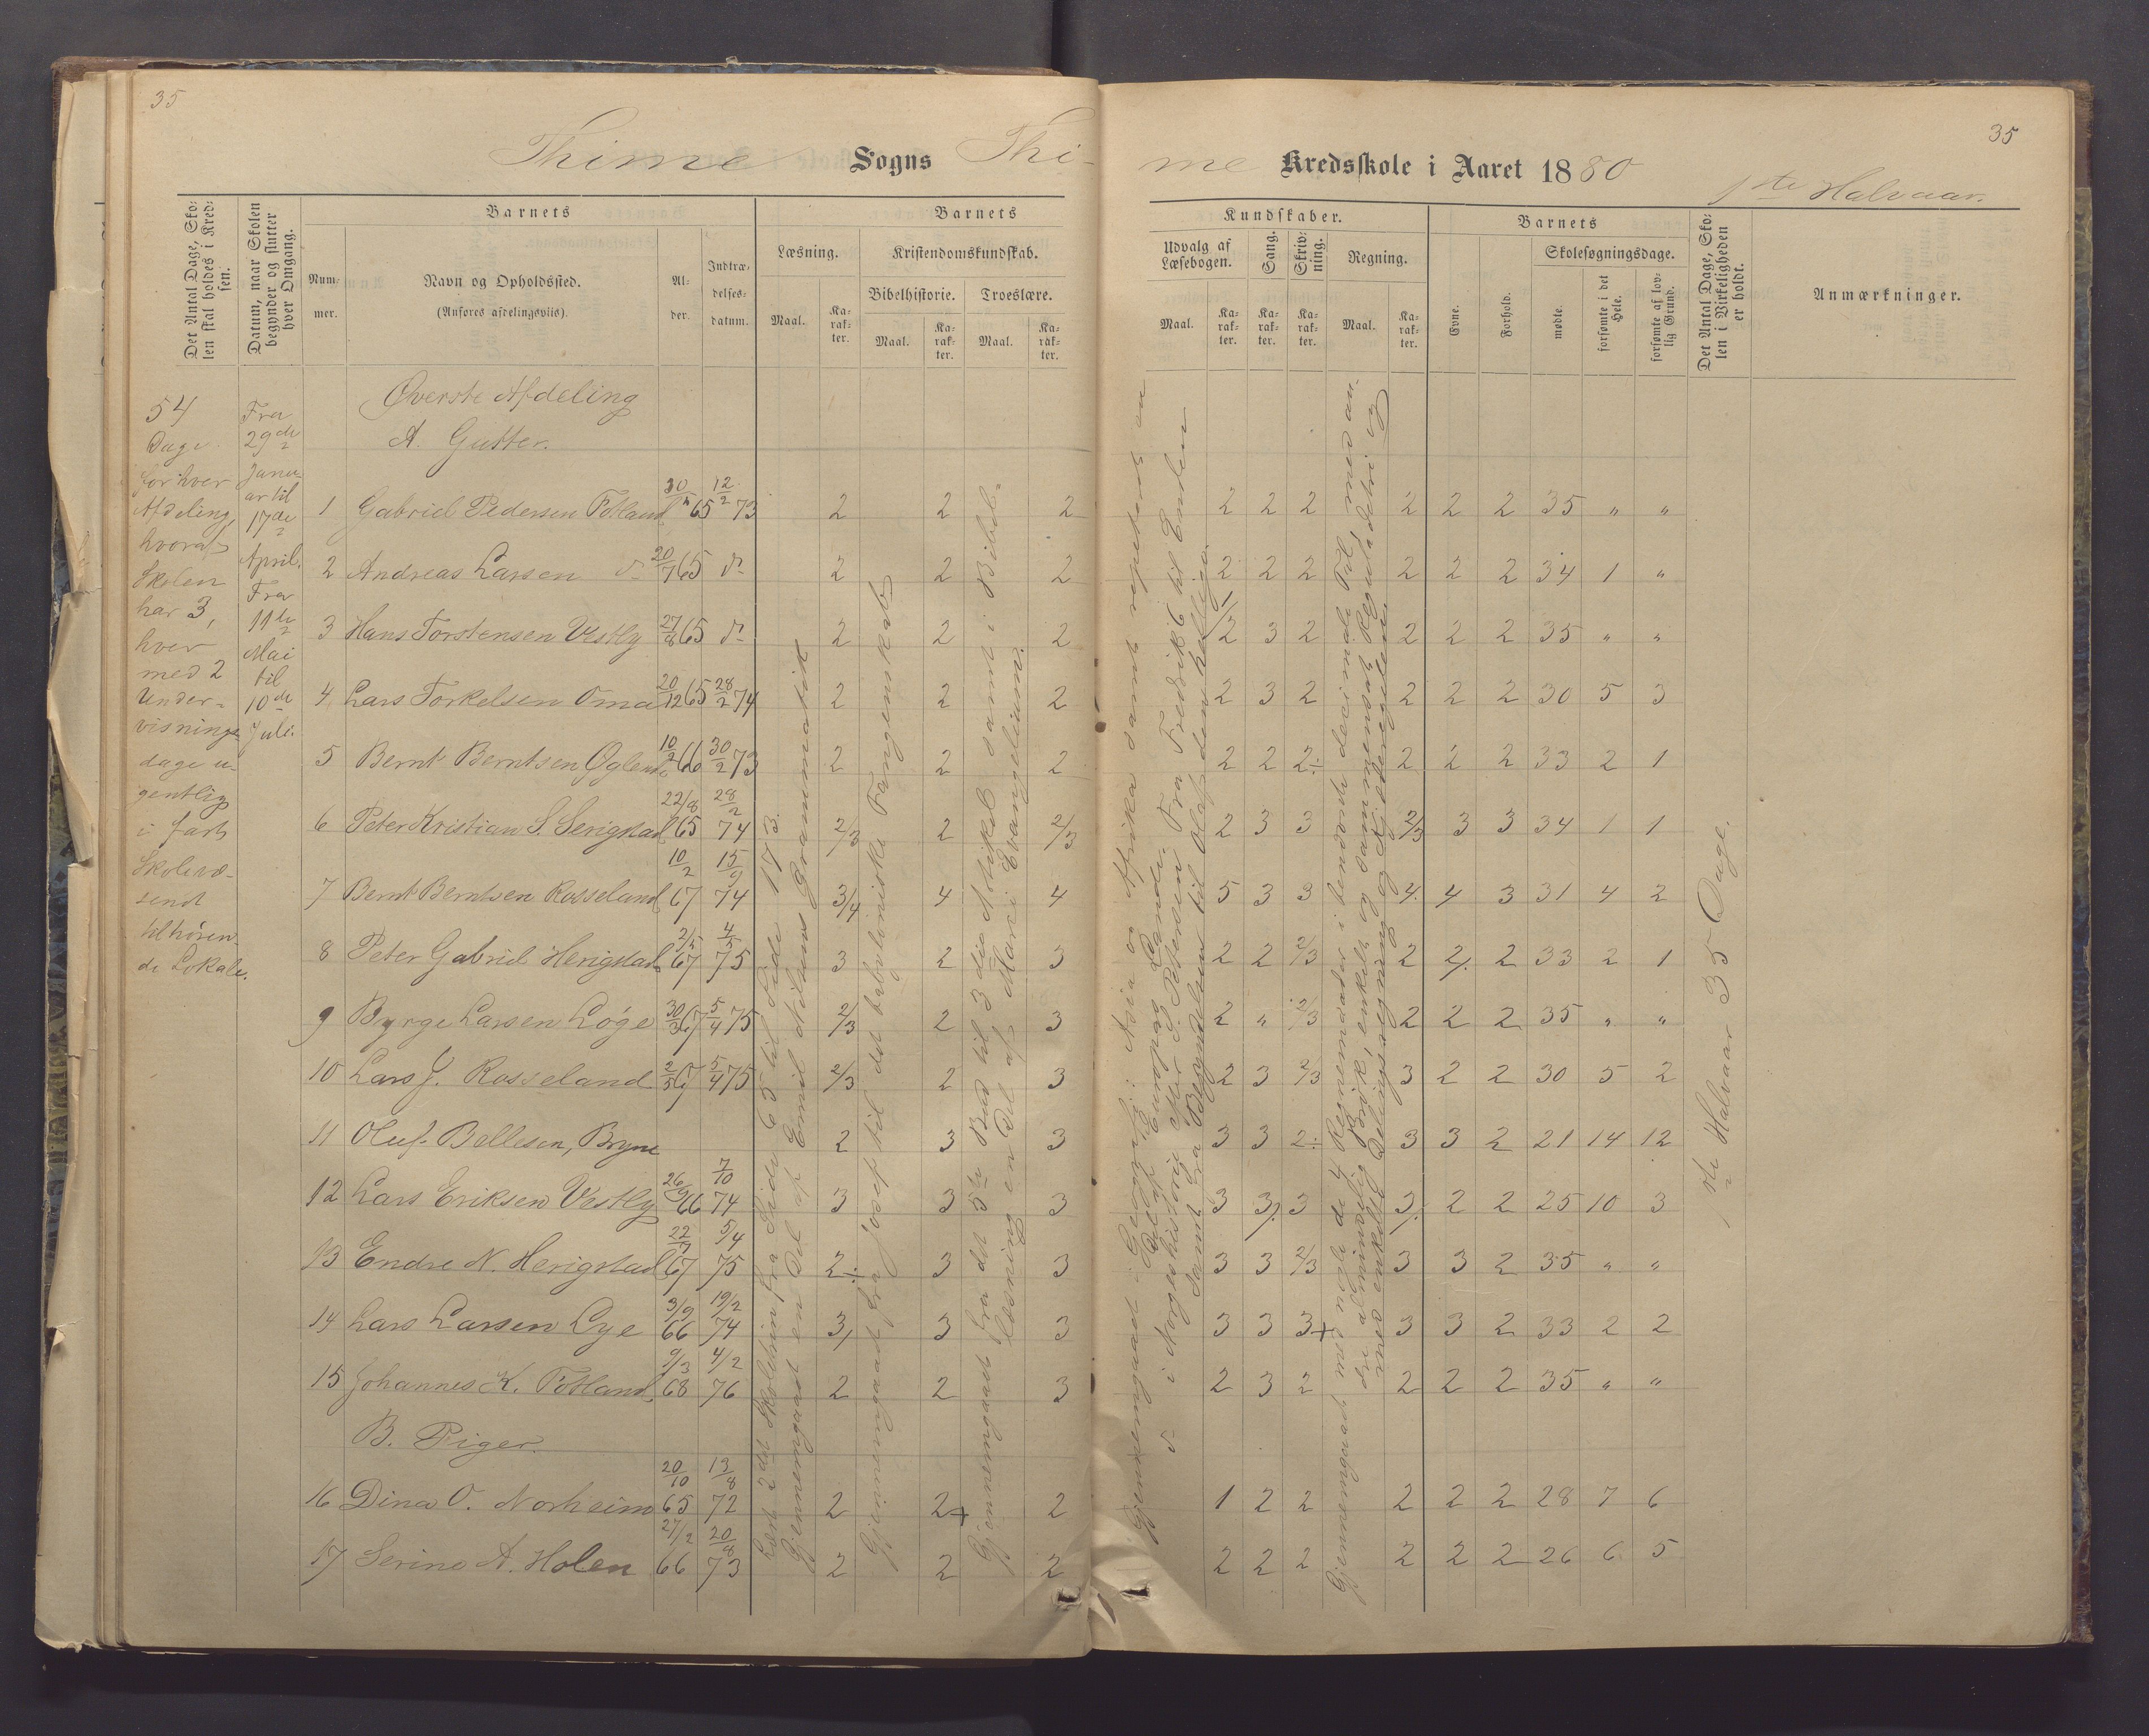 35
35
Thime Sogns Thime Kredsskole i Aaret 1880
1ste Halvaar.
Det Antal Dage, Skolen skal holdes i Kredsen.
Datum, naar Skolen begynder og slutter hver Omgang.
Barnets
Nummer.
Navn og Opholdssted.
(Anføres afdelingsviis).
Alder.
Indtrædelsesdatum.
Barnets
Læsning.
Maal.
Karakter.
Kristendomskundskab.
Bibelhistorie.
Maal.
Karakter.
Troeslære.
Maal.
Karakter.
Kundskaber.
Udvalg af Læsebogen.
Maal.
Karakter.
Sang.
Karakter.
Skrivning.
Karakter.
Regning.
Maal.
Karakter.
Barnets
Evne.
Forhold.
Skolesøgningsdage.
mødte.
forsømte i det Hele.
forsømte af lovlig Grund.
Det Antal Dage, Skolen i Virkeligheden er holdt.
Anmærkninger.
54
Dage
for hver
Afdeling,
hvoraf
Skolen
har 3,
hver
med 2
Under-
visnings-
dage u-
gentlig
i fast
Skolevæ-
senet
tilhøren-
de Lokale.
Fra
29de
Janu-
ar til
17de
April.
Fra
11te
Mai
til
10de
Juli.
Øverste Afdeling
A. Gutter.
1 Gabriel Pedersen Fotland 65 12/2 73 2 2 2 2 2 2 2 2 2 35 " "
2 Andreas Larsen do 20/7 65 do 2 2 2 2 2 2 2 2 2 34 1 "
3 Hans Torstensen Vestly 27/8 65 do 2 2 2 2 3 2 2 2 2 35 " "
4 Lars Torkelsen Oma 20/12 65 28/2 74 2 2 2 2 3 2 2 2 2 30 5 3
5 Bernt Berntsen Øglend 10/2 66 30/2 73 2 2 2 2 2 2÷ 2 2 2 33 2 1
6 Peter Kristian S. Serigstad 22/8 65 28/2 74 2/3 2 2/3 2 3 3 2/3 3 3 34 1 1
7 Bernt Berntsen Rosseland 10/2 67 15/9 74 3/4 4 4 5 3 3 4 4 3 31 4 2
8 Peter Gabriel Herigstad 2/5 67 4/5 75 3 2 3 2 2 2/3 2 2 2 33 2 1
9 Byrge Larsen Løge 30/3 67 5/4 75 2/3 2 3 2 " 2/3 2 2 2 35 " "
10 Lars J. Rosseland 2/5 67 5/4 75 2/3 2 3 2 3 2/3 3 2 2 30 5 2
11 Oluf Bellesen, Bryne 2 3 3 3 3 2÷ 3 3 2 21 14 12
12 Lars Eriksen Vestly 26/9 66 7/10 74 3 3 3 3 3 3 3 2 2 25 10 3
13 Endre N. Herigstad 22/7 67 5/4 75 2÷ 3 3 3 3 2/3 3 3 2 35 " "
14 Lars Larsen Lye 3/9 66 19/2 74 3 3 3 3 3 3+ 3 3 2 33 2 2
15 Johannes K. Fotland 9/3 68 4/2 76 2 2 3 2 3 2 2 2 2 35 " "
B. Piger.
16 Dina O. Norheim 20/10 65 13/8 72 2 2+ 2 1 2 2 2 2 2 28 7 6
17 Serine A. Holen 27/2 66 20/8 73 2 2 2 2 2 2 2 2 2 26 6 5
Læst 2det Skoletrin fra Side 65 til Side 173.
Gjennemgaaet en Del af Emil Nilsens Grammatik
Gjennemgaaet fra Josef til det babyloniske Fangenskab
Gjennemgaaet fra det 5te Bud til 3die Artikel samt i Bibel-
læsning en Del af Marci Evangelium.
Gjennemgaaet i Geografi: Asia og Afrika samt repeteret en
Del af Europas Lande.
do i Norgeshistorie efter S. Petersen Fra Fredrik 6 til Enden
samt fra Begyndelsen til Olaf den hellige.
Gjennemgaaet med nogle de 4 Regnemaader i benævnte decimale Tal, med an-
dre almindelig Brøk, enkelt og sammensat Reguladetri og
med enkelte Delingsregning og Kjæderegelen
1ste Halvaar 35 Dage.